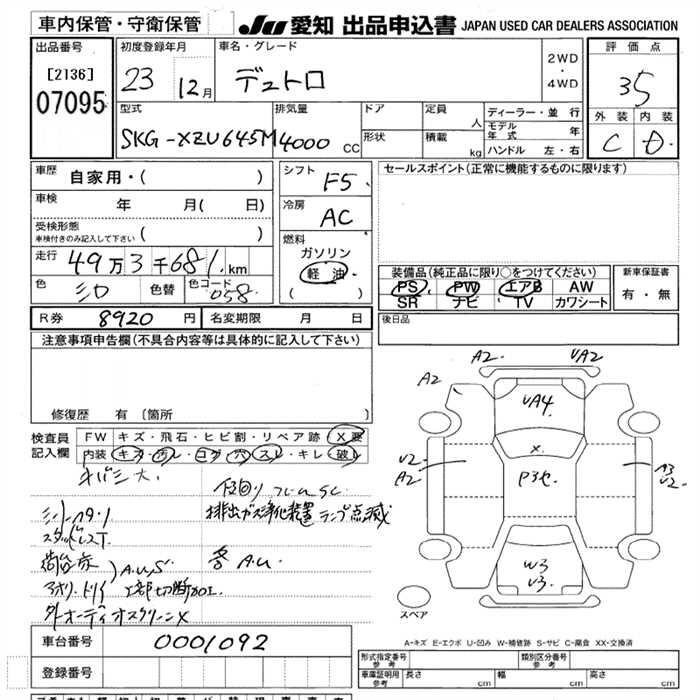 車内保管・守衛保管
JU 愛知 出品申込書 JAPAN USED CAR DEALERS ASSOCIATION
出品番号
[2136]
07095
初度登録年月
23 12月
車名・グレード
デュトロ
2WD
・
4WD
評価点
35
型式
SKG-XZU645M
排気量
4000 CC
ドア
形状
定員
人
積載
kg
ディーラー・並行
モデル年式 年
ハンドル 左・右
外装 内装
C D
車歴
自家用・( )
車検
年 月( 日)
受検形態
車検付きのみ記入して下さい ( )
走行
49万3千681km
色
シロ
色替
色コード
058
シフト
F5
冷房
AC
燃料
ガソリン
軽油
( )
セールスポイント(正常に機能するものに限ります)
装備品(純正品に限り○をつけてください)
PS PW エアB AW
SR ナビ TV カワシート
新車保証書
有・無
R券 8920 円
名変期限 月 日
後日品
注意事項申告欄(不具合内容等は具体的に記入して下さい)
修復歴 有 〔箇所 〕
検査員記入欄
FW キズ・飛石・ヒビ割・リペア跡・X要
内装 キズ・汚レ・コゲ・穴・スレ・キレ・破レ
サバシ大.
下回りフレームSC
シートハタリ
排出ガス浄化装置ランプ点滅
スタッドレスT
荷台床
アオリ.トリイ
)A.U.S
上部切断加工
各A.U.
外オーディオスクリーンX
A2 VA2
A2
VA4
X
V2
A2
P3セ
A3
V2
W3
V3
スペア
A-キズ E-エクボ U-凹み W-補修跡 S-サビ C-腐食 XX-交換済
車台番号
0001092
登録番号
形式指定番号 参考
類別区分番号 参考
車庫証明用 参考
長さ cm 幅 cm 高さ cm